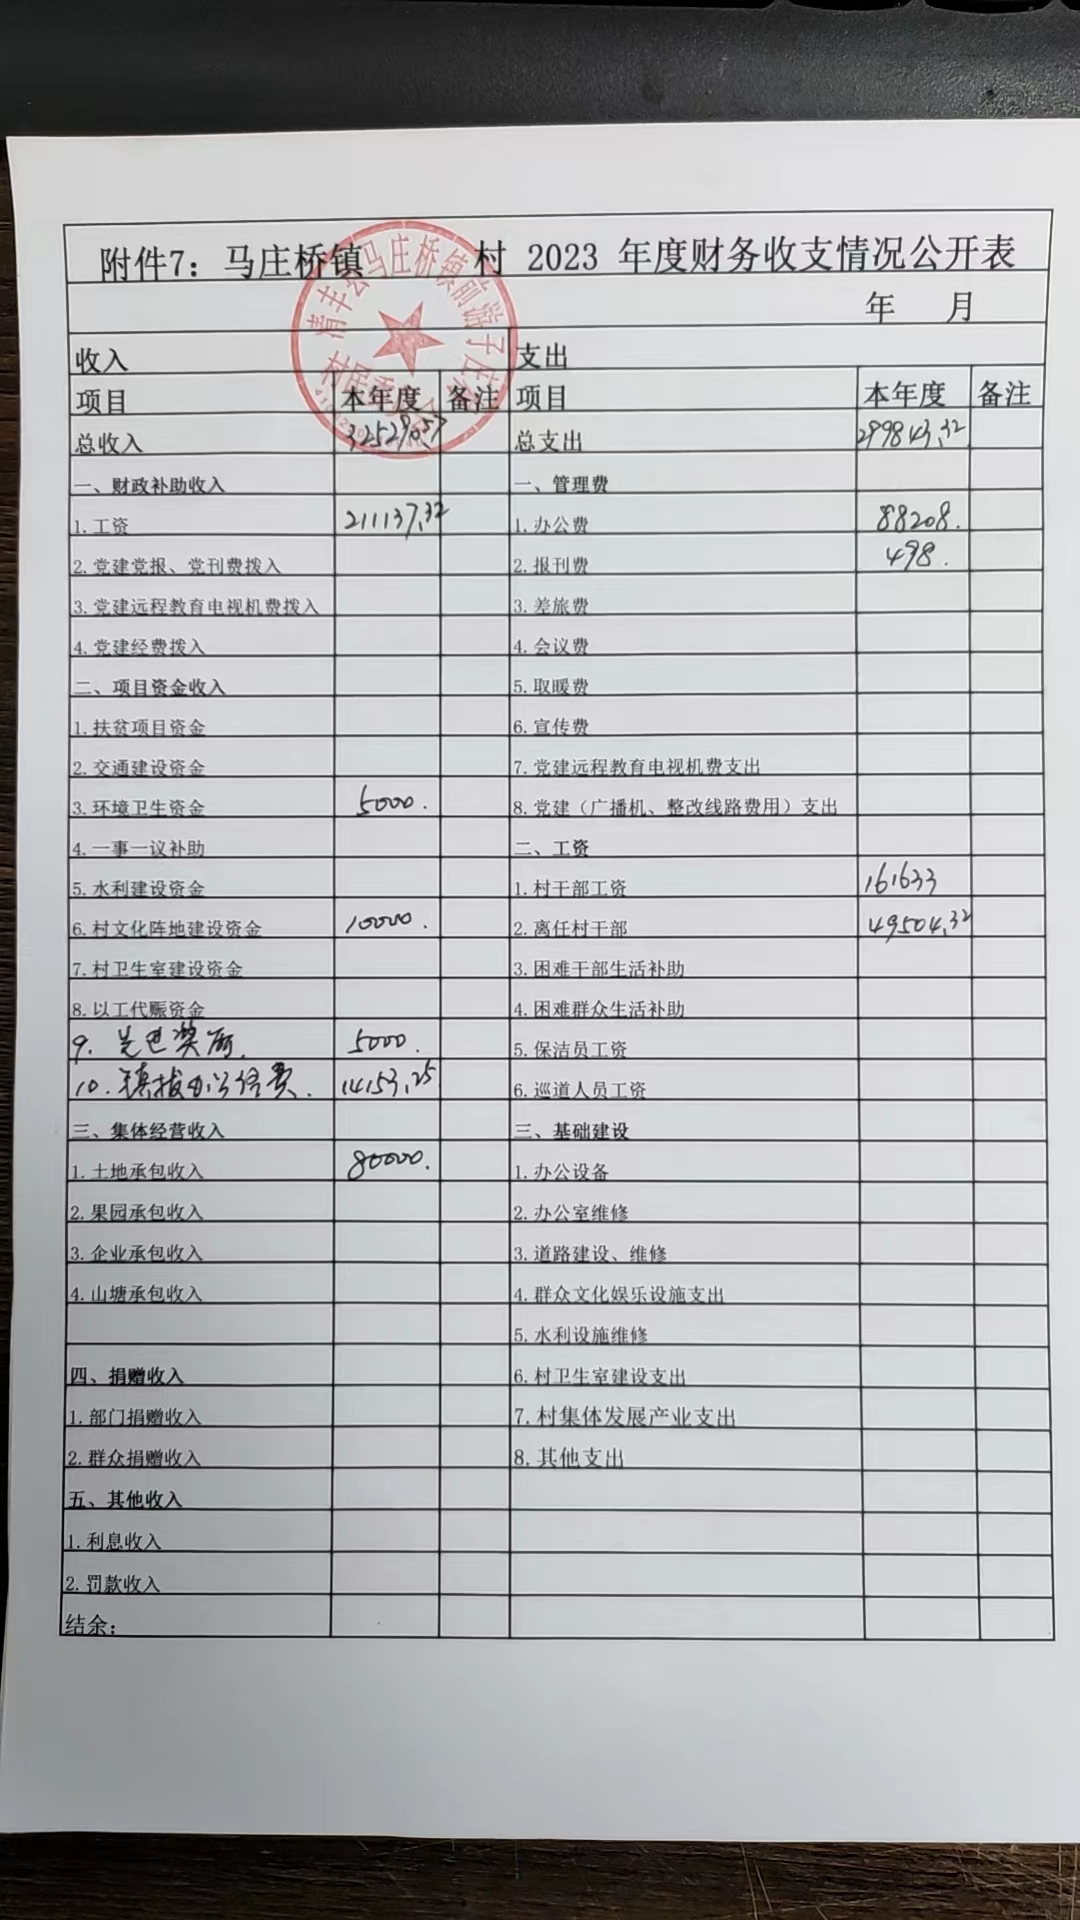 附件7：马庄桥镇 村 2023 年度财务收支情况公开表
清丰县马庄桥镇前游子庄
村民委员会
年 月
收入 支出
项目 本年度 备注 项目 本年度 备注
总收入 325290.57 总支出 299843.32
一、财政补助收入 一、管理费
1.工资 211137.32 1.办公费 88208.
2.党建党报、党刊费拨入 2.报刊费 498.
3.党建远程教育电视机费拨入 3.差旅费
4.党建经费拨入 4.会议费
二、项目资金收入 5.取暖费
1.扶贫项目资金 6.宣传费
2.交通建设资金 7.党建远程教育电视机费支出
3.环境卫生资金 5000. 8.党建（广播机、整改线路费用）支出
4.一事一议补助 二、工资
5.水利建设资金 1.村干部工资 161633
6.村文化阵地建设资金 10000. 2.离任村干部 49504.32
7.村卫生室建设资金 3.困难干部生活补助
8.以工代赈资金 4.困难群众生活补助
9.先进奖励. 5000. 5.保洁员工资
10.镇拨办公经费. 14153.25 6.巡道人员工资
三、集体经营收入 三、基础建设
1.土地承包收入 80000. 1.办公设备
2.果园承包收入 2.办公室维修
3.企业承包收入 3.道路建设、维修
4.山塘承包收入 4.群众文化娱乐设施支出
5.水利设施维修
四、捐赠收入 6.村卫生室建设支出
1.部门捐赠收入 7.村集体发展产业支出
2.群众捐赠收入 8.其他支出
五、其他收入
1.利息收入
2.罚款收入
结余：